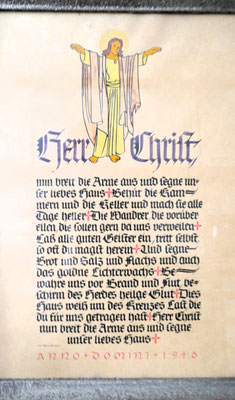 Herr Christ
nun breit die Arme aus und segne un-
ser liebes Haus + Behüt die Kam-
mern und die Keller und mach sie alle
Tage heller + Die Wandrer die vorüber
eilen die sollen gern da uns verweilen +
Laß alle guten Geister ein, tritt selbst
so oft du magst herein + Und segne
Brot und Salz und Flachs und auch
das goldne Lichterwachs + Be-
wahre uns vor Brand und Flut, be-
schirm des Herdes heilge Glut + Dies
Haus weiß um des Kreuzes Last die
du für uns getragen hast + Herr Christ
nun breit die Arme aus und segne
unser liebes Haus +
ANNO + DOMINI + 1946